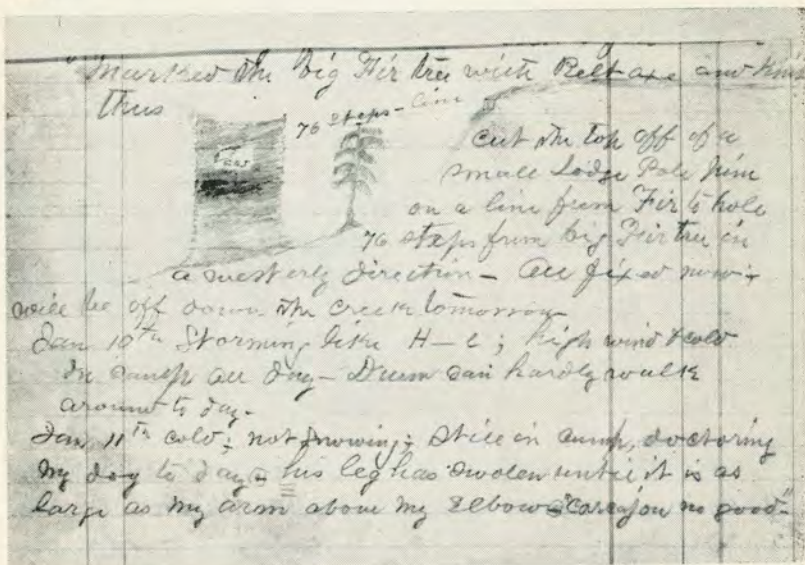 "Marked the big Fir tree with Belt axe and
thus
76 steps - line
cut the top off of a
small Lodge Pole
on a line from Fir to hole
76 steps from big Fir tree in
a westerly direction - All fixed now +
will be off down the creek tomorrow -
Jan 10th Storming like H-l; high wind & cold
In camp all day - Drum can hardly walk
around to day -
Jan 11th cold; not snowing; still in camp, doctoring
my dog to day - his leg has swolen until it is as
large as my arm above my Elbow no good -"